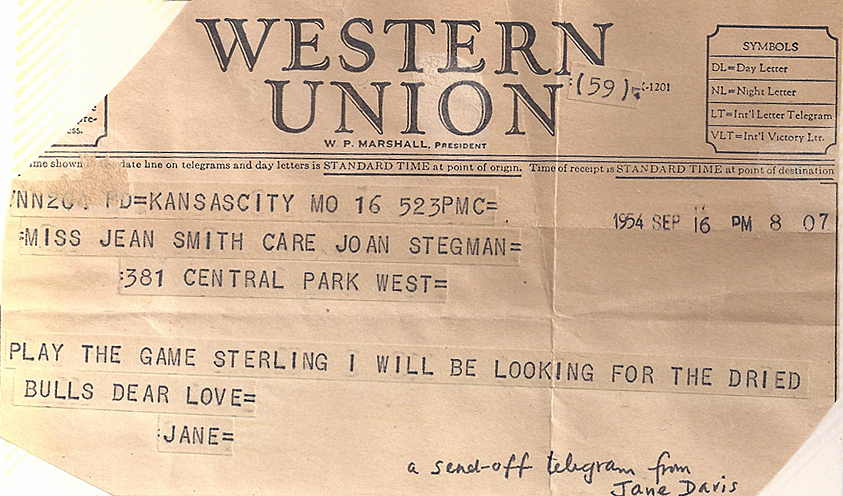 WESTERN
UNION
(59)
-1201
W P. MARSHALL, PRESIDENT
SYMBOLS
DL=Day Letter
NL=Night Letter
LT=Int'l Letter Telegram
VLT=Int'l Victory Ltr.
shown date line on telegrams and day letters is STANDARD TIME at point of origin. Time of receipt is STANDARD TIME at point of destination
PD=KANSASCITY MO 16 523PMC=
1954 SEP 16 PM 8 07
=MISS JEAN SMITH CARE JOAN STEGMAN=
:381 CENTRAL PARK WEST=
PLAY THE GAME STERLING I WILL BE LOOKING FOR THE DRIED
BULLS DEAR LOVE=
:JANE=
a send-off telegram from
Jane Davis